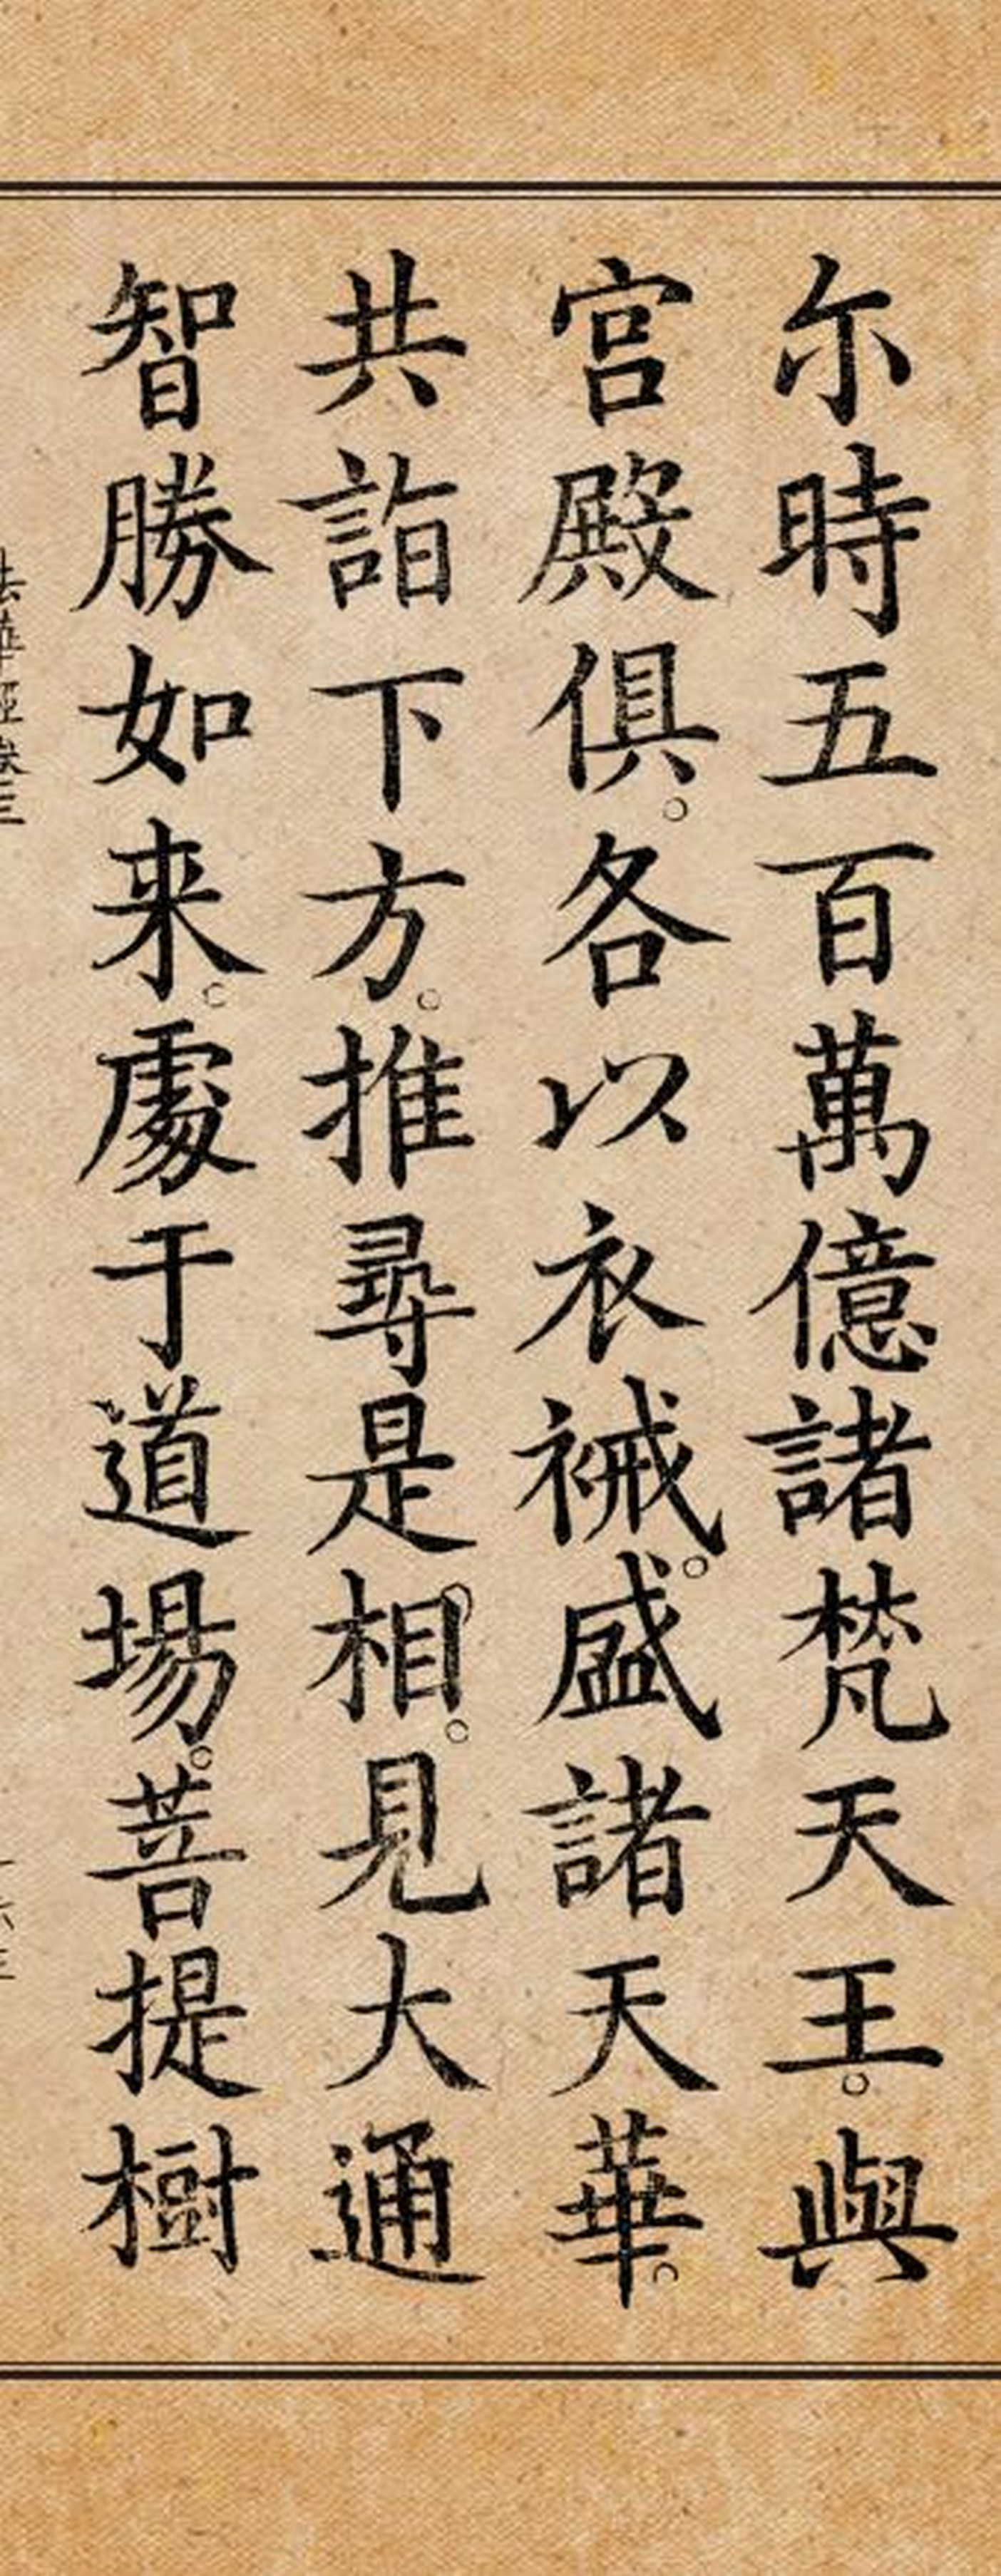 尔時五百萬億諸梵天王。與
宮殿俱。各以衣裓。盛諸天華。
共詣下方。推尋是相。見大通
智勝如来。處于道場。菩提樹
法華經卷三